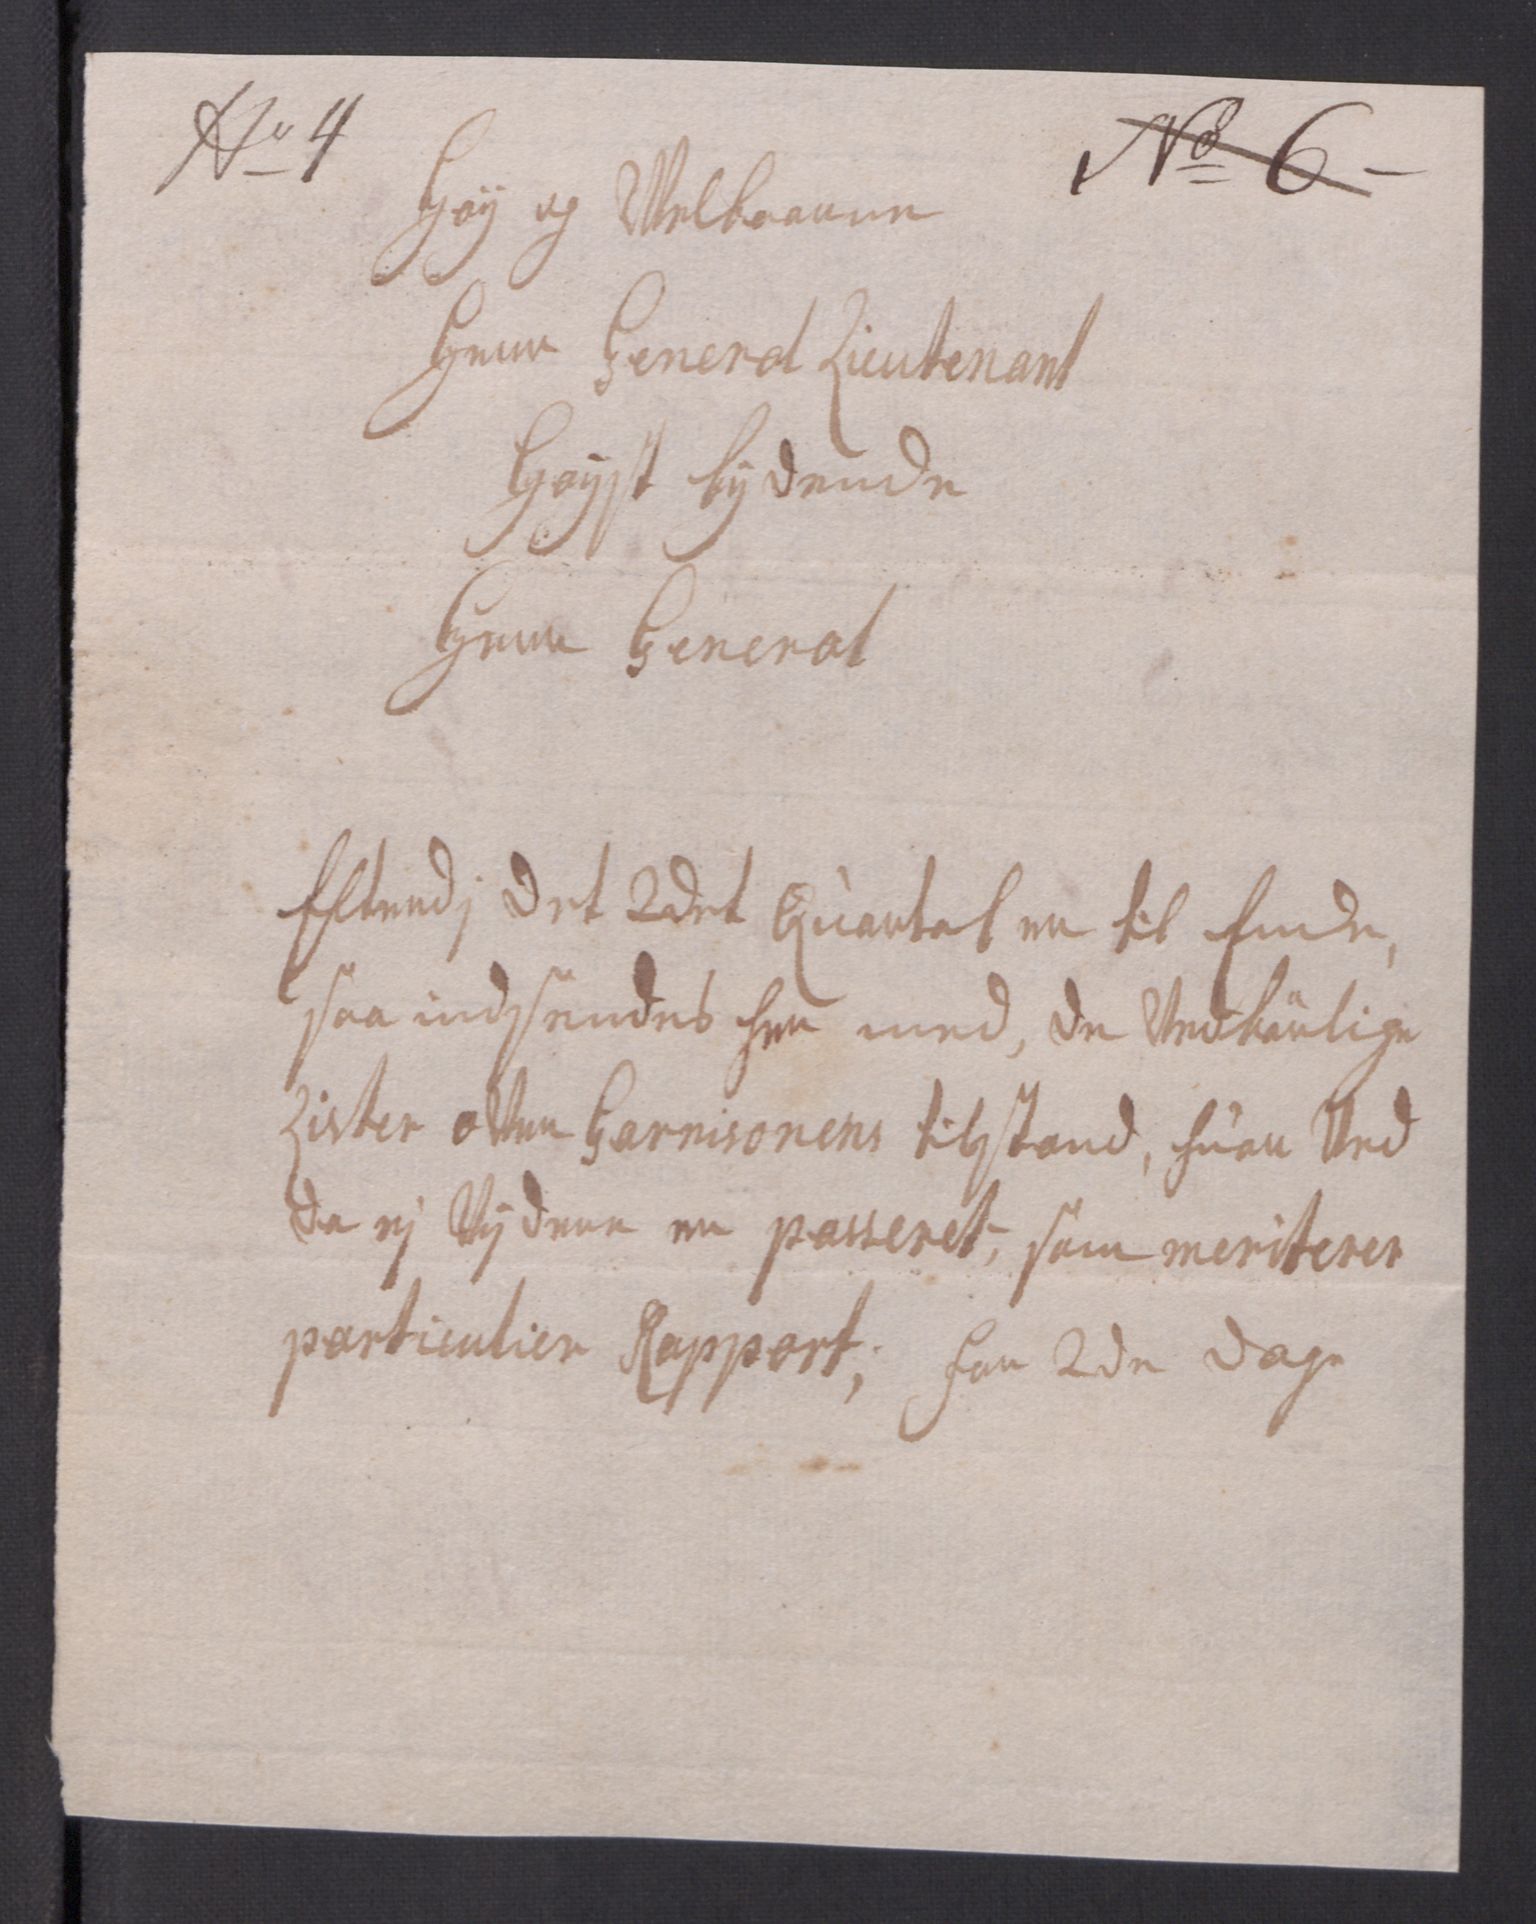 No 4
No 6 -
Höÿ og Welbaarne
Herr General Lieutenant
Höÿst bÿdende
Herr General
Efterdj det 2det Quartal er til Ende,
saa indsendes her med, de Vedbørlige
Lister over Garnisonens tilstand, huor Ved
da ej Vÿdere er passeret, som meriterer
particulier Rapport; for 2de dage